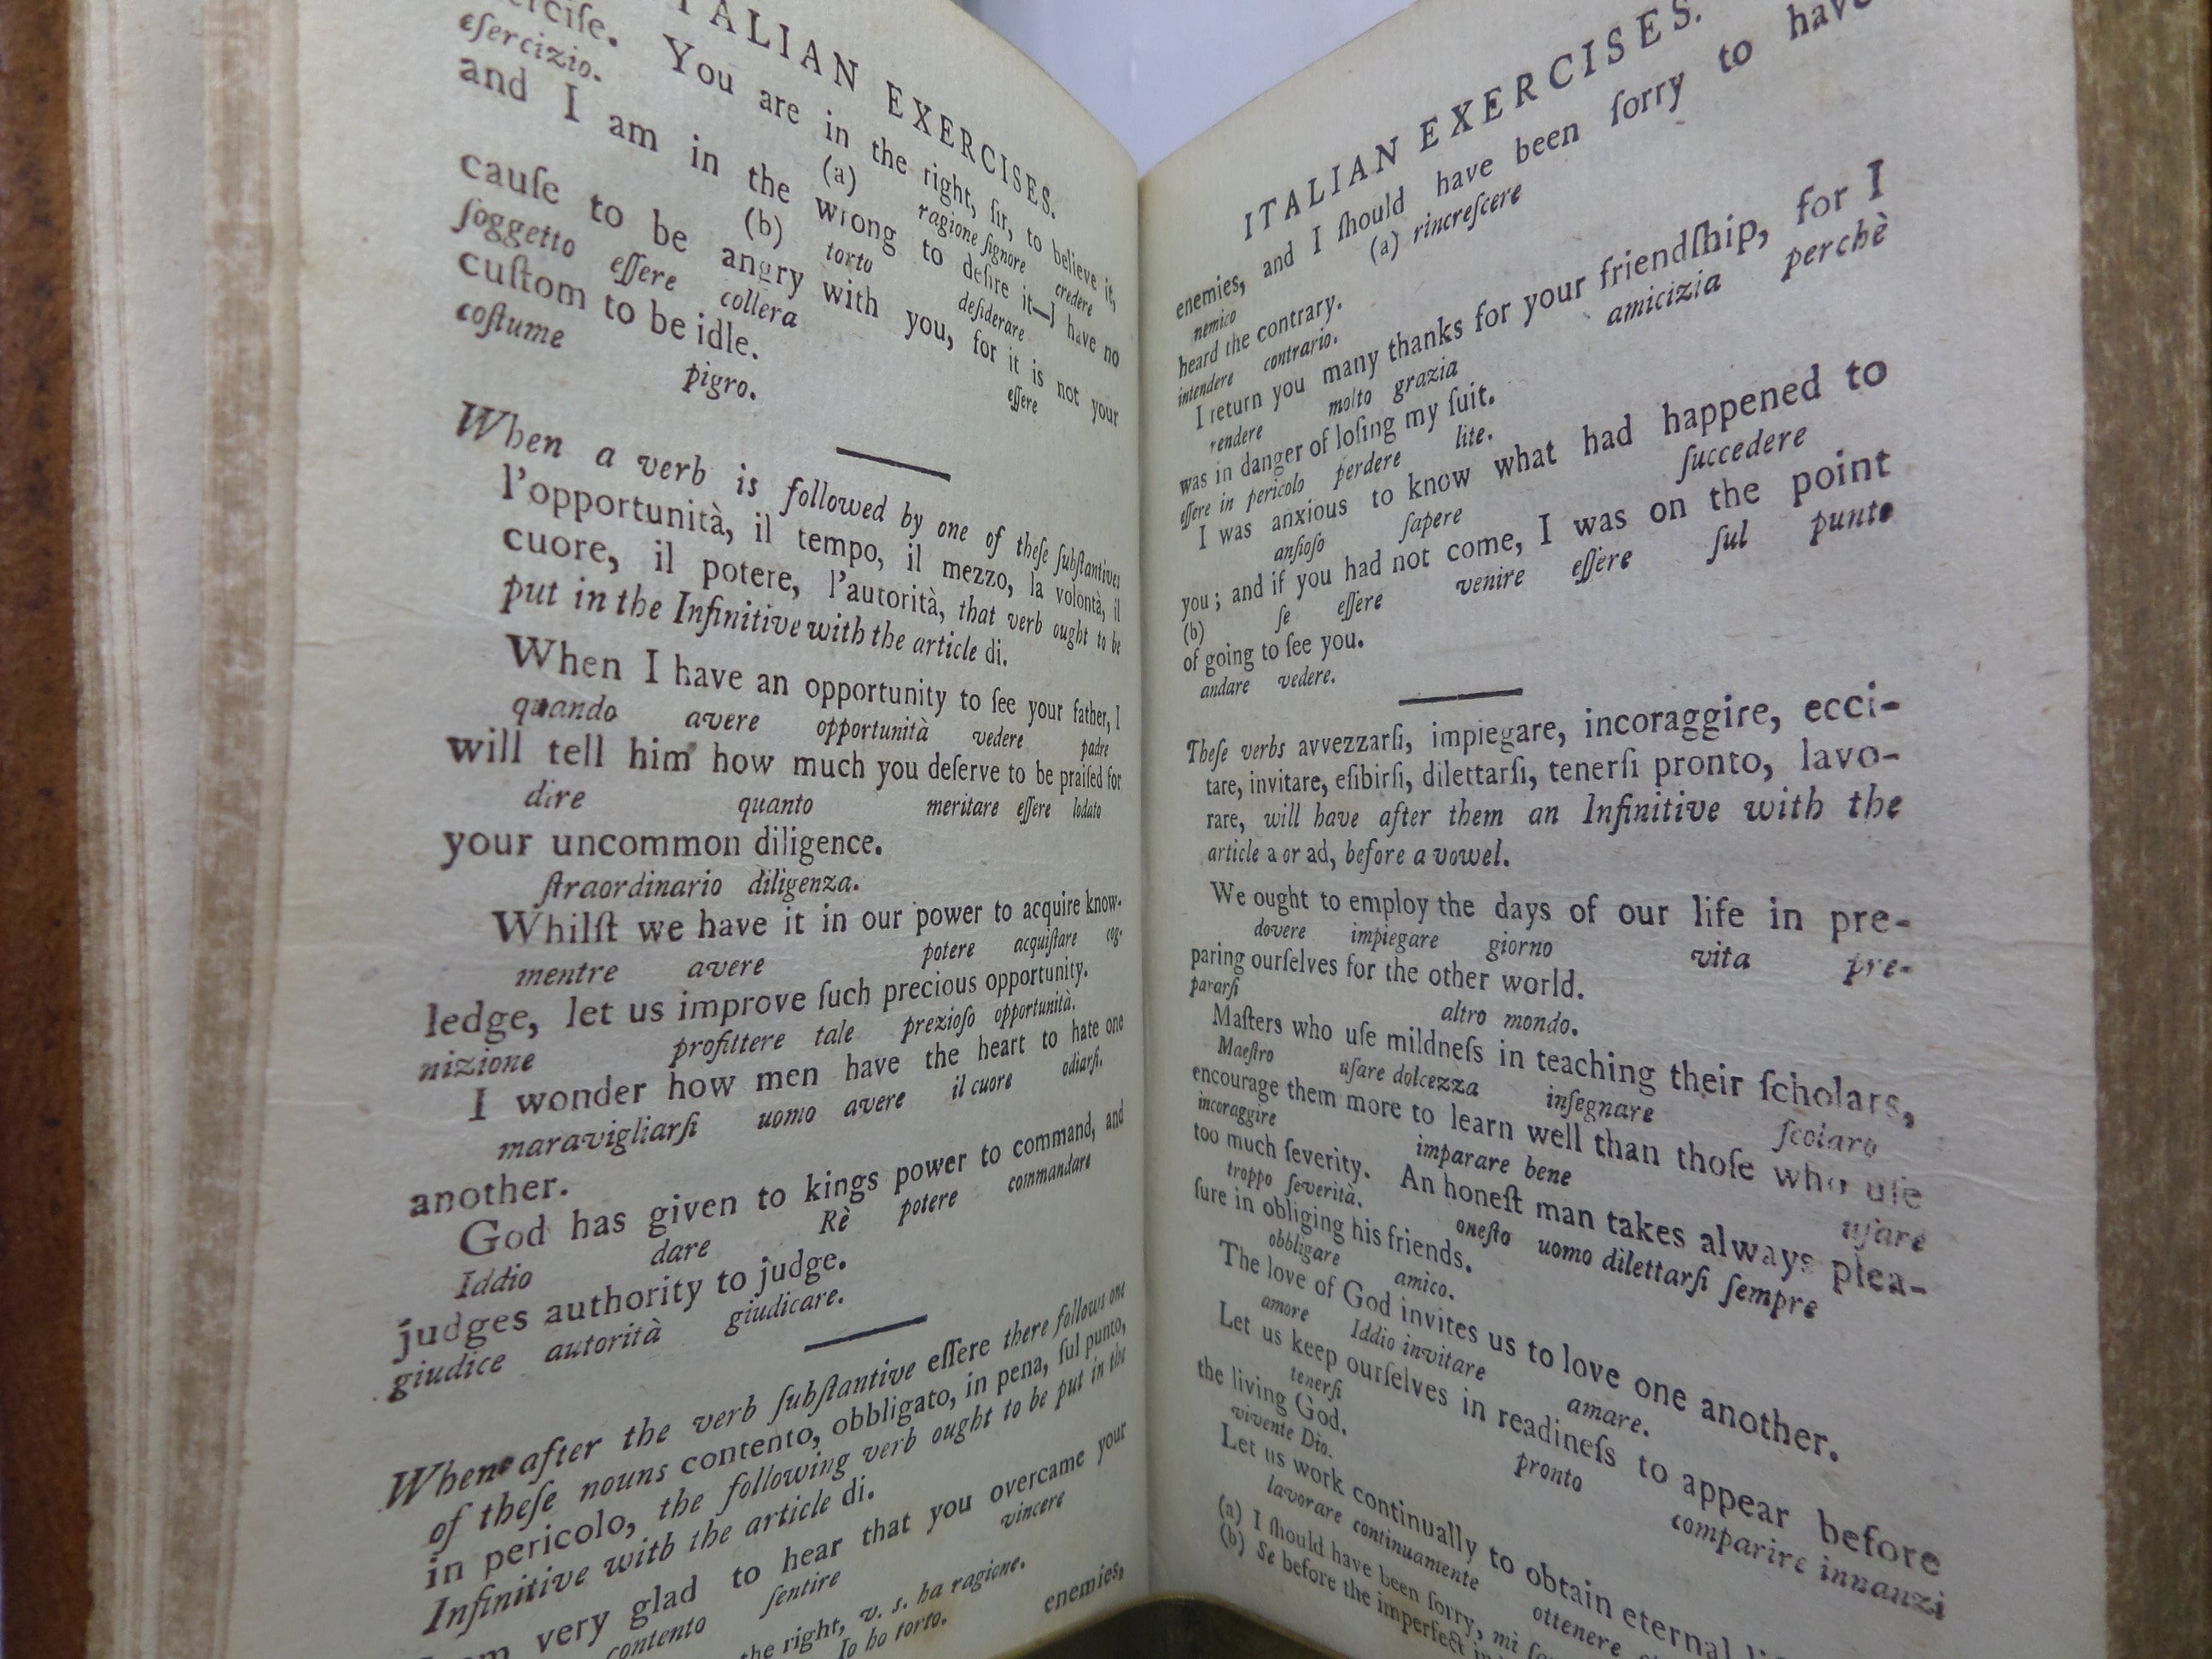 ITALIAN EXERCISES.
You are in the right, ſir, to believe it,
eſercizio. (a) ragione ſignore credere
and I am in the wrong to deſire it—I have no
(b) torto deſiderare
cauſe to be angry with you, for it is not your
ſoggetto eſſere collera eſſere
cuſtom to be idle.
coſtume pigro.
When a verb is followed by one of theſe ſubſtantives
l'opportunità, il tempo, il mezzo, la volontà, il
cuore, il potere, l'autorità, that verb ought to be
put in the Infinitive with the article di.
When I have an opportunity to ſee your father, I
quando avere opportunità vedere padre
will tell him how much you deſerve to be praiſed for
dire quanto meritare eſſere lodato
your uncommon diligence.
ſtraordinario diligenza.
Whilſt we have it in our power to acquire know-
mentre avere potere acquiſtare cog-
ledge, let us improve ſuch precious opportunity.
nizione profittere tale prezioſo opportunità.
I wonder how men have the heart to hate one
maravigliarſi uomo avere il cuore odiarſi.
another.
God has given to kings power to command, and
Iddio dare Rè potere commandare
judges authority to judge.
giudice autorità giudicare.
When after the verb ſubſtantive eſſere there follows one
of theſe nouns contento, obbligato, in pena, ſul punto,
in pericolo, the following verb ought to be put in the
Infinitive with the article di.
very glad to hear that you overcame your
contento ſentire vincere
the right, v. s. ha ragione.
Io ho torto.
enemies,
ITALIAN EXERCISES.
enemies, and I ſhould have been ſorry to have
nemico (a) rincreſcere
heard the contrary.
intendere contrario.
I return you many thanks for your friendſhip, for I
rendere molto grazia amicizia perchè
was in danger of loſing my ſuit.
eſſere in pericolo perdere lite.
I was anxious to know what had happened to
anſioſo ſapere ſuccedere
you; and if you had not come, I was on the point
(b) ſe eſſere venire eſſere ſul punto
of going to ſee you.
andare vedere.
Theſe verbs avvezzarſi, impiegare, incoraggire, ecci-
tare, invitare, eſibirſi, dilettarſi, tenerſi pronto, lavo-
rare, will have after them an Infinitive with the
article a or ad, before a vowel.
We ought to employ the days of our life in pre-
dovere impiegare giorno vita pre-
paring ourſelves for the other world.
pararſi altro mondo.
Maſters who uſe mildneſs in teaching their ſcholars,
Maeſtro uſare dolcezza inſegnare ſcolaro
encourage them more to learn well than thoſe who uſe
incoraggire imparare bene uſare
too much ſeverity. An honeſt man takes always plea-
troppo ſeverità. oneſto uomo dilettarſi ſempre
ſure in obliging his friends.
obbligare amico.
The love of God invites us to love one another.
amore Iddio invitare amare.
Let us keep ourſelves in readineſs to appear before
tenerſi pronto comparire innanzi
the living God.
vivente Dio.
Let us work continually to obtain eternal
lavorare continuamente ottenere
(a) I ſhould have been ſorry, mi
(b) Se before the imperfect